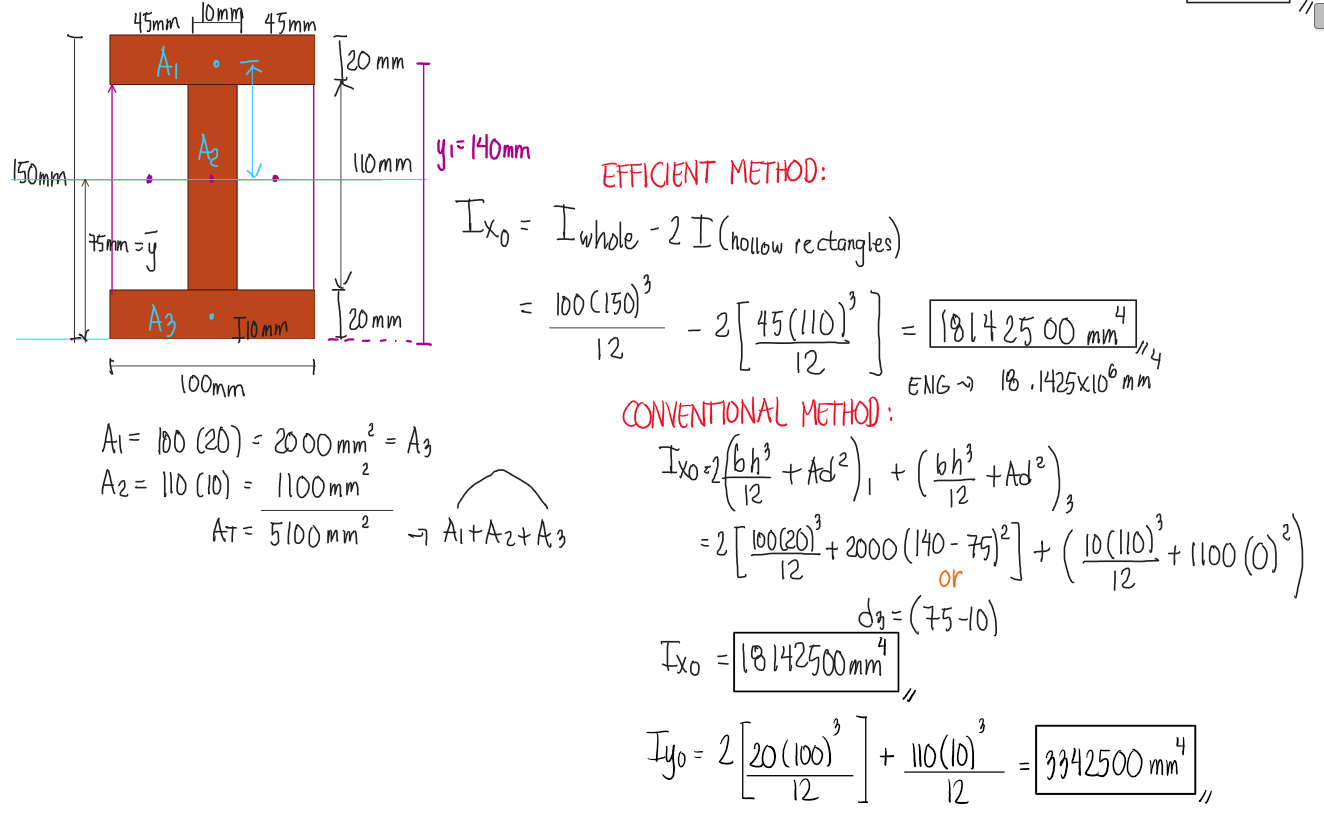 45mm 10mm 45mm
A₁
20 mm
A₂
y₁=140mm
150mm
110mm
75mm = ȳ
A₃
10mm
20mm
100mm
A₁ = 100 (20) = 2000 mm² = A₃
A₂ = 110 (10) = 1100 mm²
A_T = 5100 mm² → A₁+A₂+A₃
EFFICIENT METHOD:
I_x₀ = I whole - 2 I (hollow rectangles)
= 100(150)³/12 - 2[45(110)³/12] = 18142500 mm⁴ //
ENG → 18.1425x10⁶ mm⁴
CONVENTIONAL METHOD:
I_x₀ = 2(bh³/12 + Ad²)₁ + (bh³/12 + Ad²)₃
= 2[100(20)³/12 + 2000(140-75)²] + (10(110)³/12 + 1100(0)²)
or
d₃ = (75-10)
I_x₀ = 18142500 mm⁴ //
I_y₀ = 2[20(100)³/12] + 110(10)³/12 = 3342500 mm⁴ //